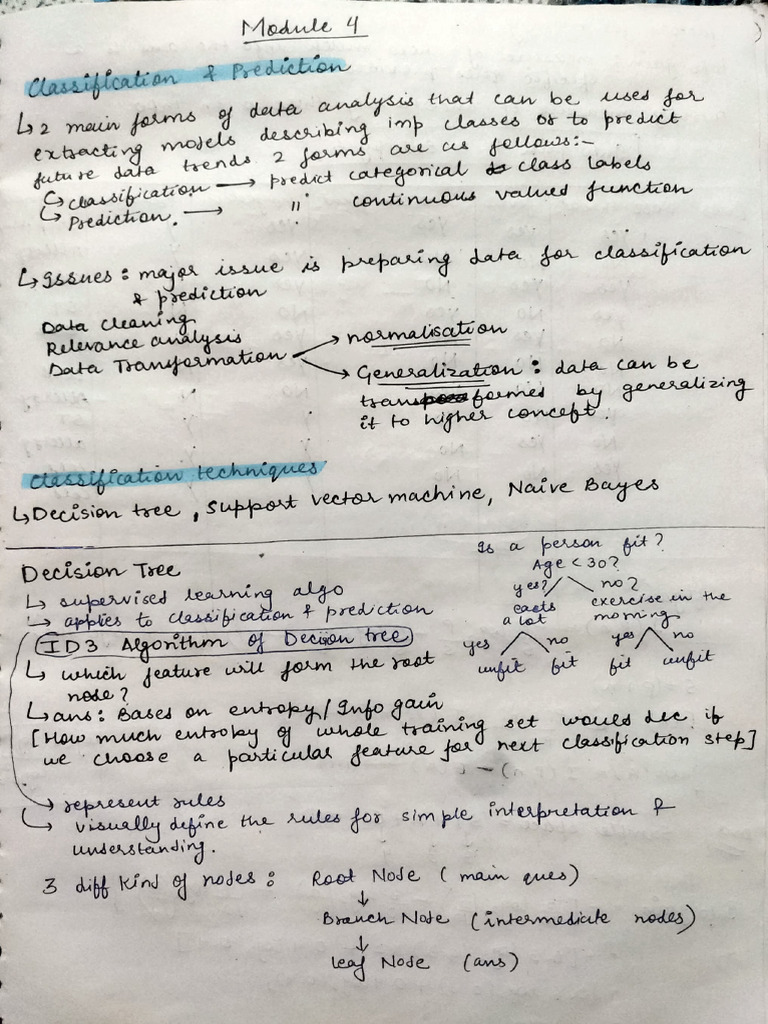 Module 4
Classification & Prediction
↳ 2 main forms of data analysis that can be used for
extracting models describing imp classes or to predict
future data trends 2 forms are as follows:-
↳ classification → predict categorical class labels
↳ Prediction. → " continuous values function
↳ Issues: major issue is preparing data for classification
& prediction
Data Cleaning
Relevance analysis
Data Transformation → normalisation
→ Generalization: data can be
transformed by generalizing
it to higher concept.
Classification techniques
↳ Decision tree, Support vector machine, Naive Bayes
Is a person fit?
Age < 30?
yes? no?
eacts a lot
exercise in the morning
yes no yes no
unfit fit fit unfit
Decision Tree
↳ supervised learning algo
↳ applies to classification & prediction
ID3 Algorithm of Decision tree
↳ which feature will form the root
node?
↳ ans: Bases on entropy/Info gain
[How much entropy of whole training set would dec if
we choose a particular feature for next classification step]
→ represent rules
↳ visually define the rules for simple interpretation &
understanding.
3 diff kind of nodes: Root Node (main ques)
↓
Branch Node (intermediate nodes)
↓
Leaf Node (ans)